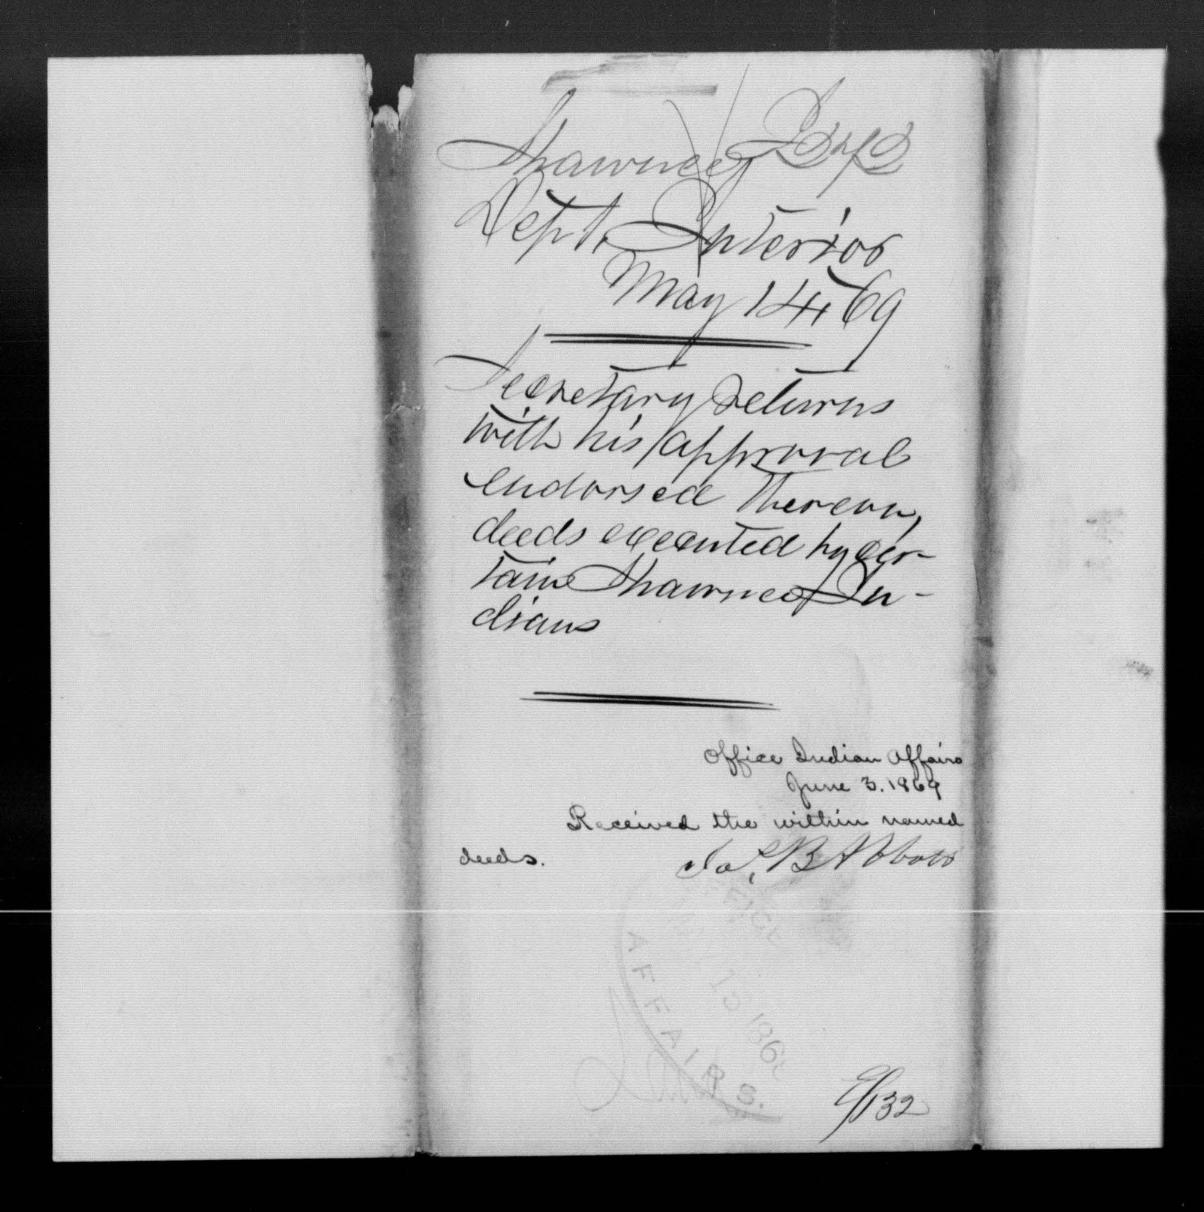 Shawnee
Dept. Interior
May 14, 69
Secretary returns
with his approval
endorsed thereon,
deeds executed by cer-
tain Shawnee In-
dians
Office Indian Affairs
June 3. 1869
Received the within named
deeds. Jas. B Abbott
OFFICE
AFFAIRS.
132